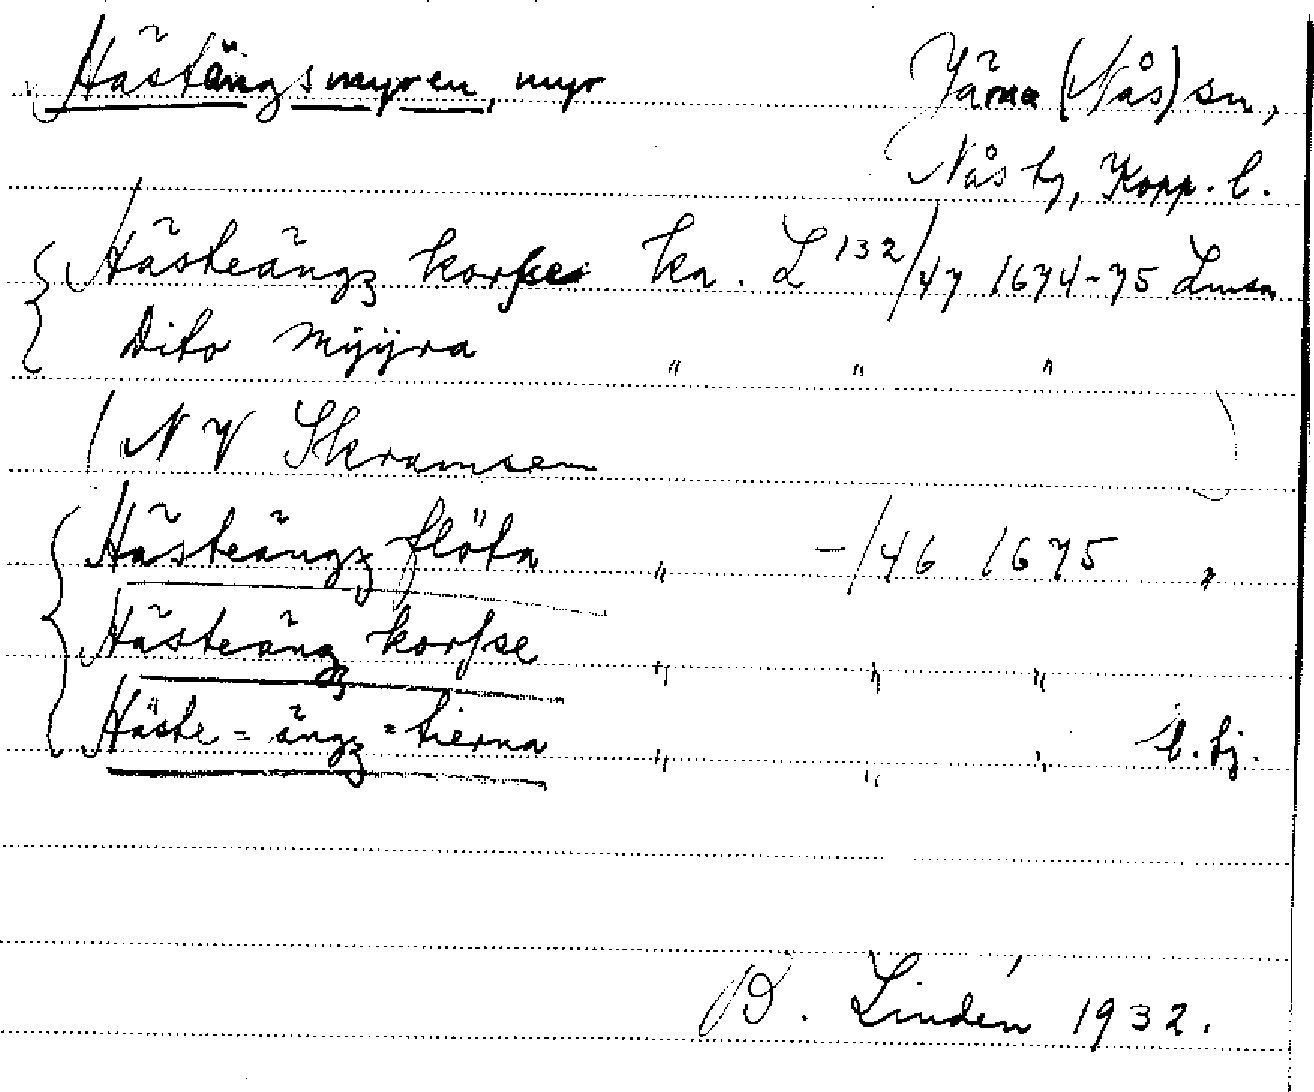 Hästängsmyren, myr Järna (Nås) sn,
Nås tg, Kopp. l.
Hästeängz korsse kn. L 132/47 1674-75 Lmsa
Dito Mÿÿra " " "
N V Skramsen
Hästeängz flöta " -/46 1675 "
Hästeängz korsse " " "
Häste=ängz=tierna " " " b. tj.
B. Lindén 1932.